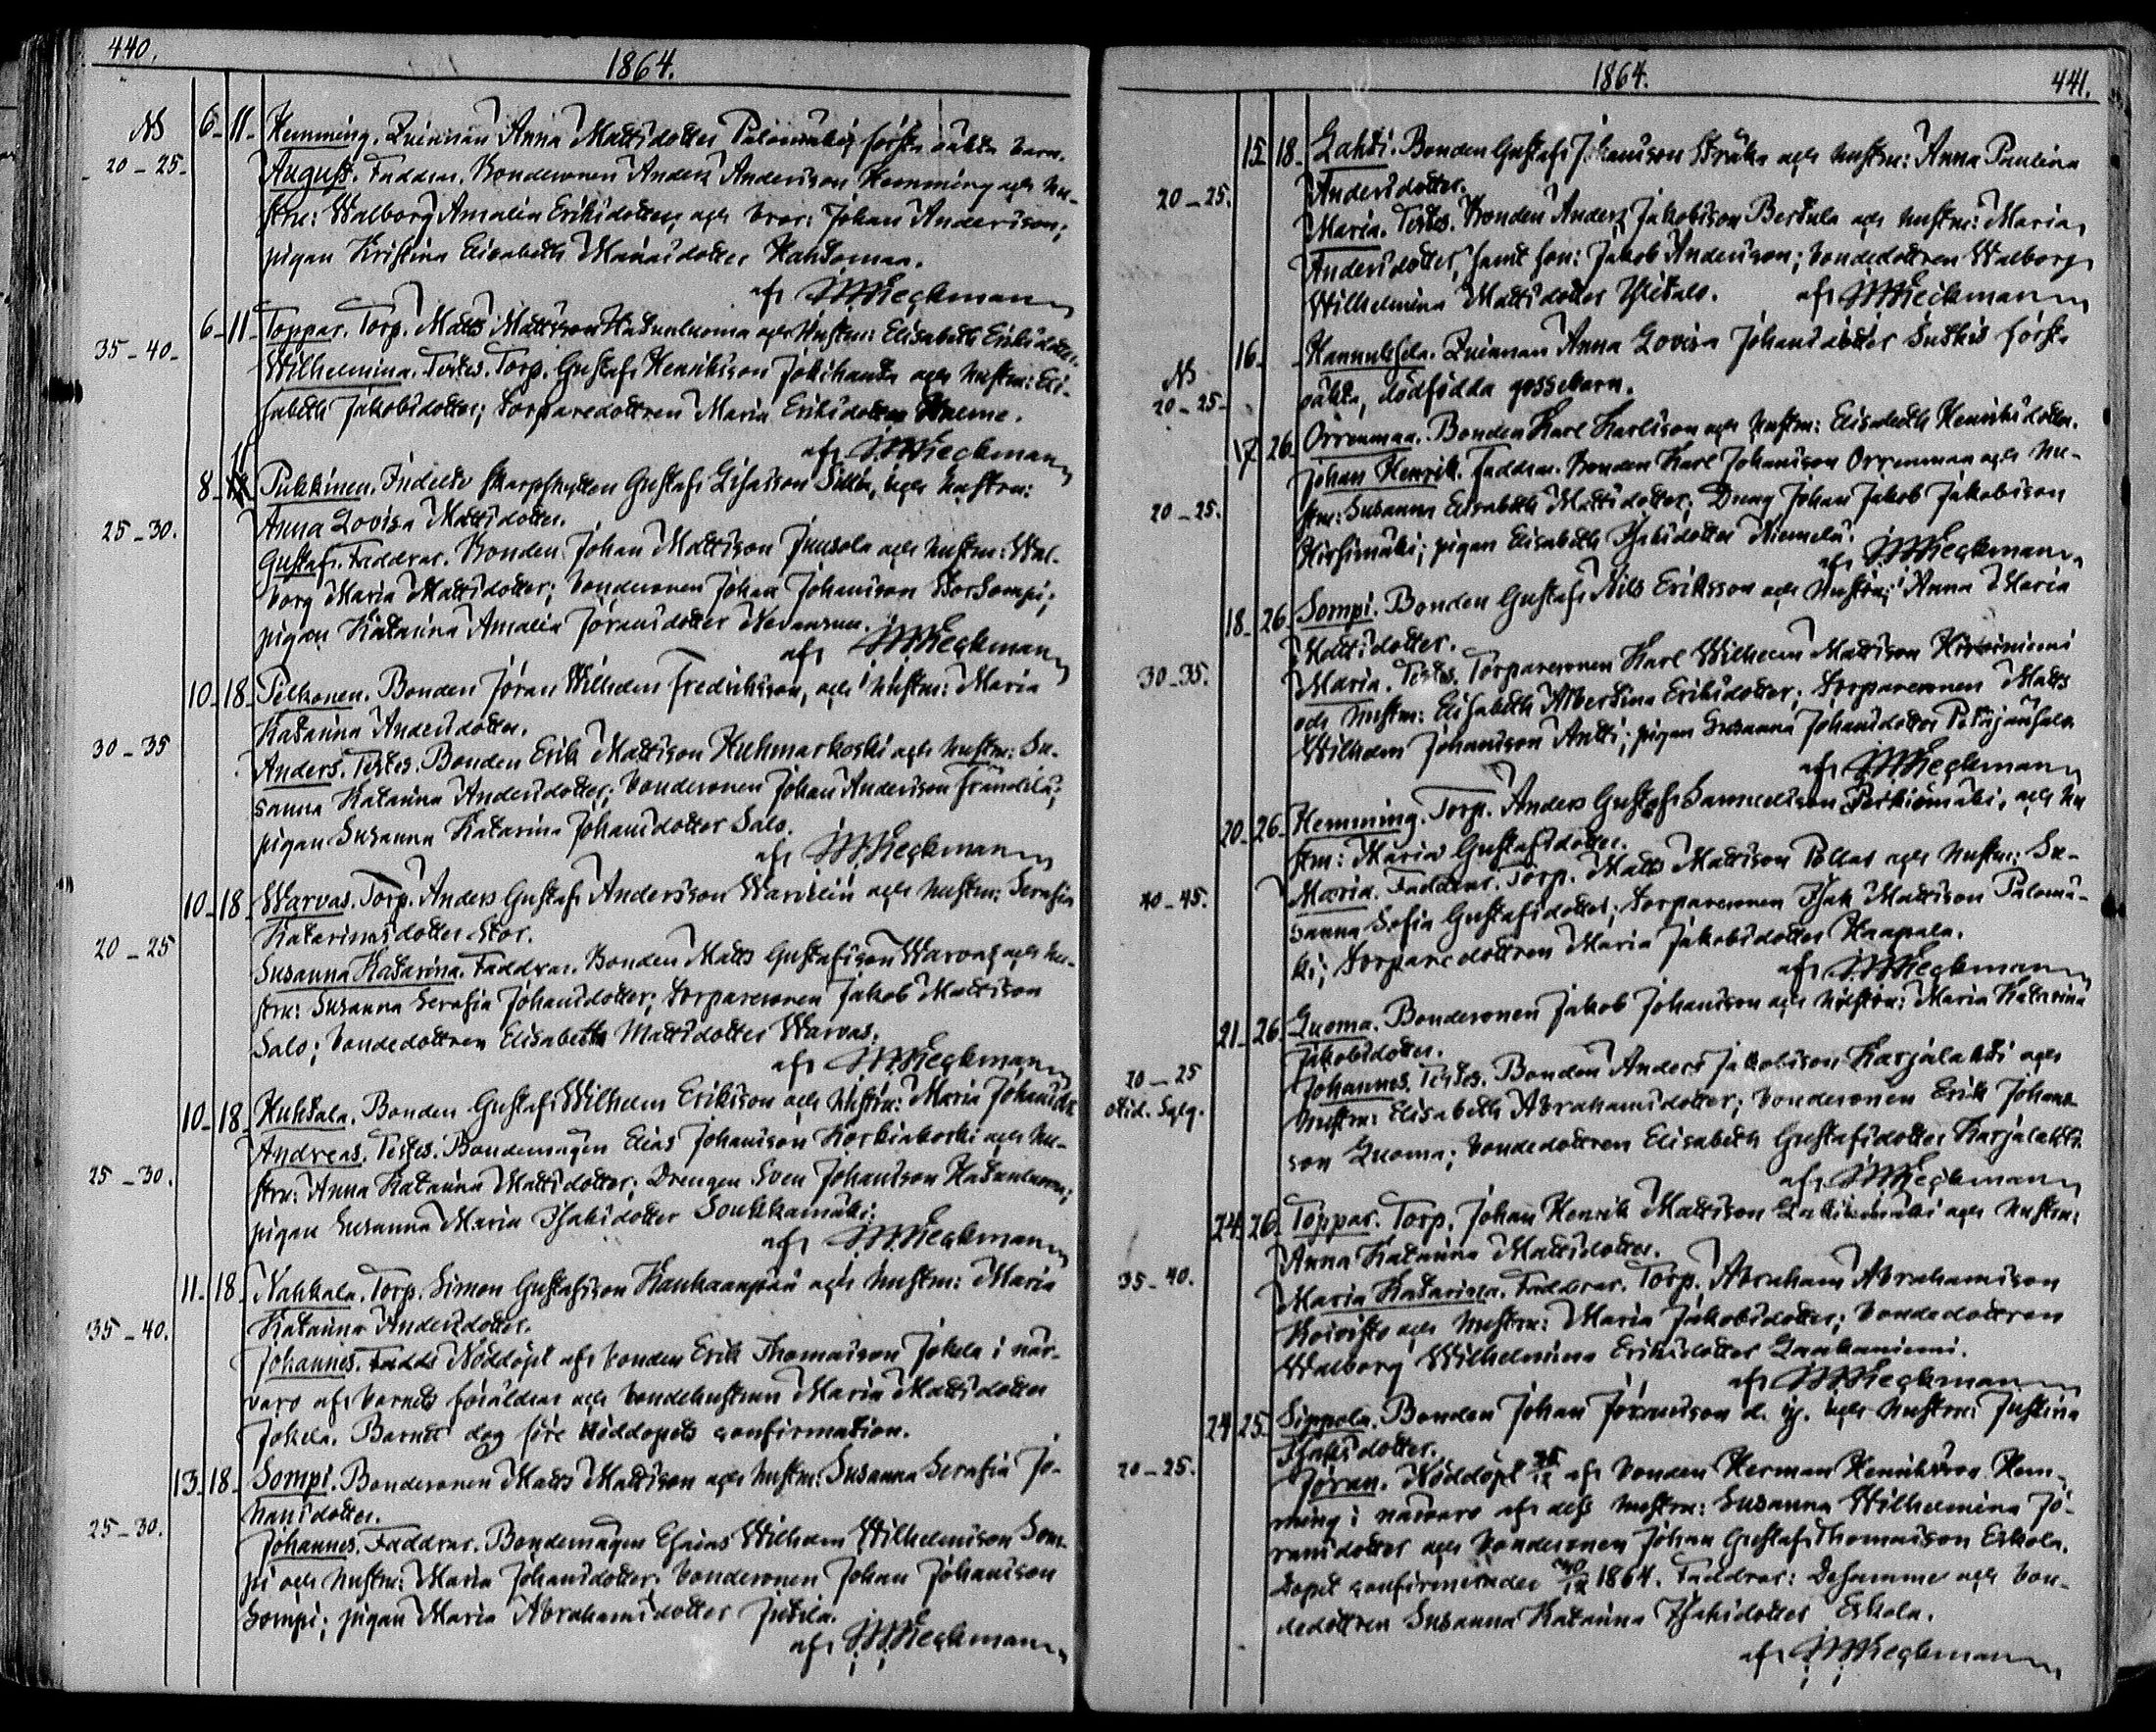 440.
1864.
NB 6 11 Hemming. Qvinnan Anna Mattsdotter Palomäkis första oäkta barn.
20-25. August. Faddrar. Bondesonen Anders Andersson Hemming och hu-
stru: Walborg Amalia Eriksdotter, och bror: Johan Andersson;
pigan Kristina Elisabeth Mariasdotter Hautomaa.
af
6 11 Toppar. Torp. Matts Mattsson Katunluoma och hustru: Elisabeth Eriksdotter
35-40. Wilhelmina. Testes. Torp. Gustaf Henriksson Jokihanta och hustru: Eli-
sabeth Jakobsdotter; torparedottren Maria Eriksdotter
af
8 11 Pukkinen. Indelte skarpskytten Gustaf Esaisson Sillin, och hustru:
Anna Lovisa Mattsdotter.
25-30. Gustaf. Faddrar. Bonden Johan Mattsson Juusola och hustru: Wal-
borg Maria Mattsdotter; bondesonen Johan Johansson Storsompi;
pigan Katarina Amalia Jöransdotter
af
10 18 Pelkonen. Bonden Jöran Wilhelm Fredriksson, och hustru: Maria
Katarina Andersdotter.
30-35 Anders. Testes. Bonden Erik Mattsson Kuhmarkoski och hustru: Su-
sanna Katarina Andersdotter; bondesonen Johan Andersson Främtilä;
pigan Susanna Katarina Johansdotter Salo.
af
10 18 Warvas. Torp. Anders Gustaf Andersson och hustru: Serafia
Katarinasdotter Stor.
20-25 Susanna Katarina. Faddrar. Bonden Matts Gustafsson Warvas och hu-
stru: Susanna Serafia Johansdotter; torparesonen Jakob Mattsson
Salo; bondedottren Elisabeth Mattsdotter Warvas.
af
10 18 Huhtala. Bonden Gustaf Wilhelm Eriksson och hustru: Maria Johansdr.
Andreas. Testes. Bondemågen Elias Johansson Koskiakoski och hu-
25-30. stru: Anna Katarina Mattsdotter; Drengen Sven Johansson Katunluoma;
pigan Susanna Maria Isaksdotter Soukkamäki.
af
11 18 Nahkala. Torp. Simon Gustafsson Kauhaanpää och hustru: Maria
35-40. Katarina Andersdotter.
Johannes. Nöddöpt af bonden Erik Thomasson Jokela i när-
varo af barnets föräldrar och bondehustrun Maria Mattsdotter
Jokela. Barnet dog före nöddopets confirmation.
13 18 Sompi. Bondesonen Matts Mattsson och hustru: Susanna Serafia Jo-
hansdotter.
25-30. Johannes. Faddrar. Bondemågen Esaias Wilhelm Wilhelmsson Som-
pi och hustru: Maria Johansdotter; bondesonen Johan Johansson
Sompi; pigan Maria Abrahamsdotter Jutila.
af
1864.
441.
15 18 Lahti. Bonden Gustaf Johansson Stråka och hustru: Anna Paulina
20-25. Andersdotter.
Maria. Testes. Bonden Anders Jakobsson Bertula och hustru: Maria
Andersdotter, samt son: Jakob Andersson; bondedottren Walborg
Wilhelmina Mattsdotter Ylitalo. af
16 Hannuksela. Qvinnan Anna Lovisa Johansdotter första
NB 20-25. oäkta, dödfödda gossebarn.
17 26 Orrenmaa. Bonden Karl Karlsson och hustru: Elisabeth Henriksdotter.
Johan Henrik. Faddrar. Bonden Karl Johansson Orrenmaa och hu-
20-25. stru: Susanna Elisabeth Mattsdotter; Dräng Johan Jakob Jakobsson
Hirsimäki; pigan Elisabeth Isaksdotter Niemelä.
af
18 26 Sompi. Bonden Gustaf Nils Eriksson och hustru: Anna Maria
Mattsdotter.
30-35. Maria. Testes. Torparesonen Karl Wilhelm Mattsson
och hustru: Elisabeth Albertina Eriksdotter; torparesonen Matts
Wilhelm Johansson Antti; pigan Susanna Johansdotter Petäjänsalo
af
20 26 Hemming. Torp. Anders Gustaf Samuelsson Perkiömäki, och hu
stru: Maria Gustafsdotter.
40-45. Maria. Faddrar. Torp. Matts Mattsson Pollas och hustru: Su-
sanna Sofia Gustafsdotter; torparesonen Isak Mattsson Palomä-
ki; torparedottren Maria Jakobsdotter Haapala.
af
21 26 Luoma. Bondesonen Jakob Johansson och hustru: Maria Katarina
Jakobsdotter.
20-25 Johannes. Testes. Bonden Anders Jakobsson Karjalahti och
hustru: Elisabeth Abrahamsdotter; bondesonen Erik Johans-
son Luoma; bondedottren Elisabeth Gustafsdotter Karjalahti.
af
24 26 Toppar. Torp. Johan Henrik Mattsson och hustru:
Anna Katarina Mattsdotter.
35-40. Maria Katarina. Faddrar. Torp. Abraham Abrahamsson
Koivisto och hustru: Maria Jakobsdotter; bondedottren
Walborg Wilhelmina Eriksdotter Laakaniemi.
af
24 25 Sippola. Bonden Johan Jöransson d. y. och hustru: Justina
Isaksdotter.
20-25. Jöran. Nöddöpt 25/12 af bonden Herman Henriksson Hem-
ming i närvaro af dess hustru: Susanna Wilhelmina Jö-
ransdotter och bondesonen Johan Gustaf Thomasson Eskola.
Dopet confirmerades 1864. Faddrar: Desamme och bon-
dedottren Susanna Katarina Isaksdotter Eskola.
af